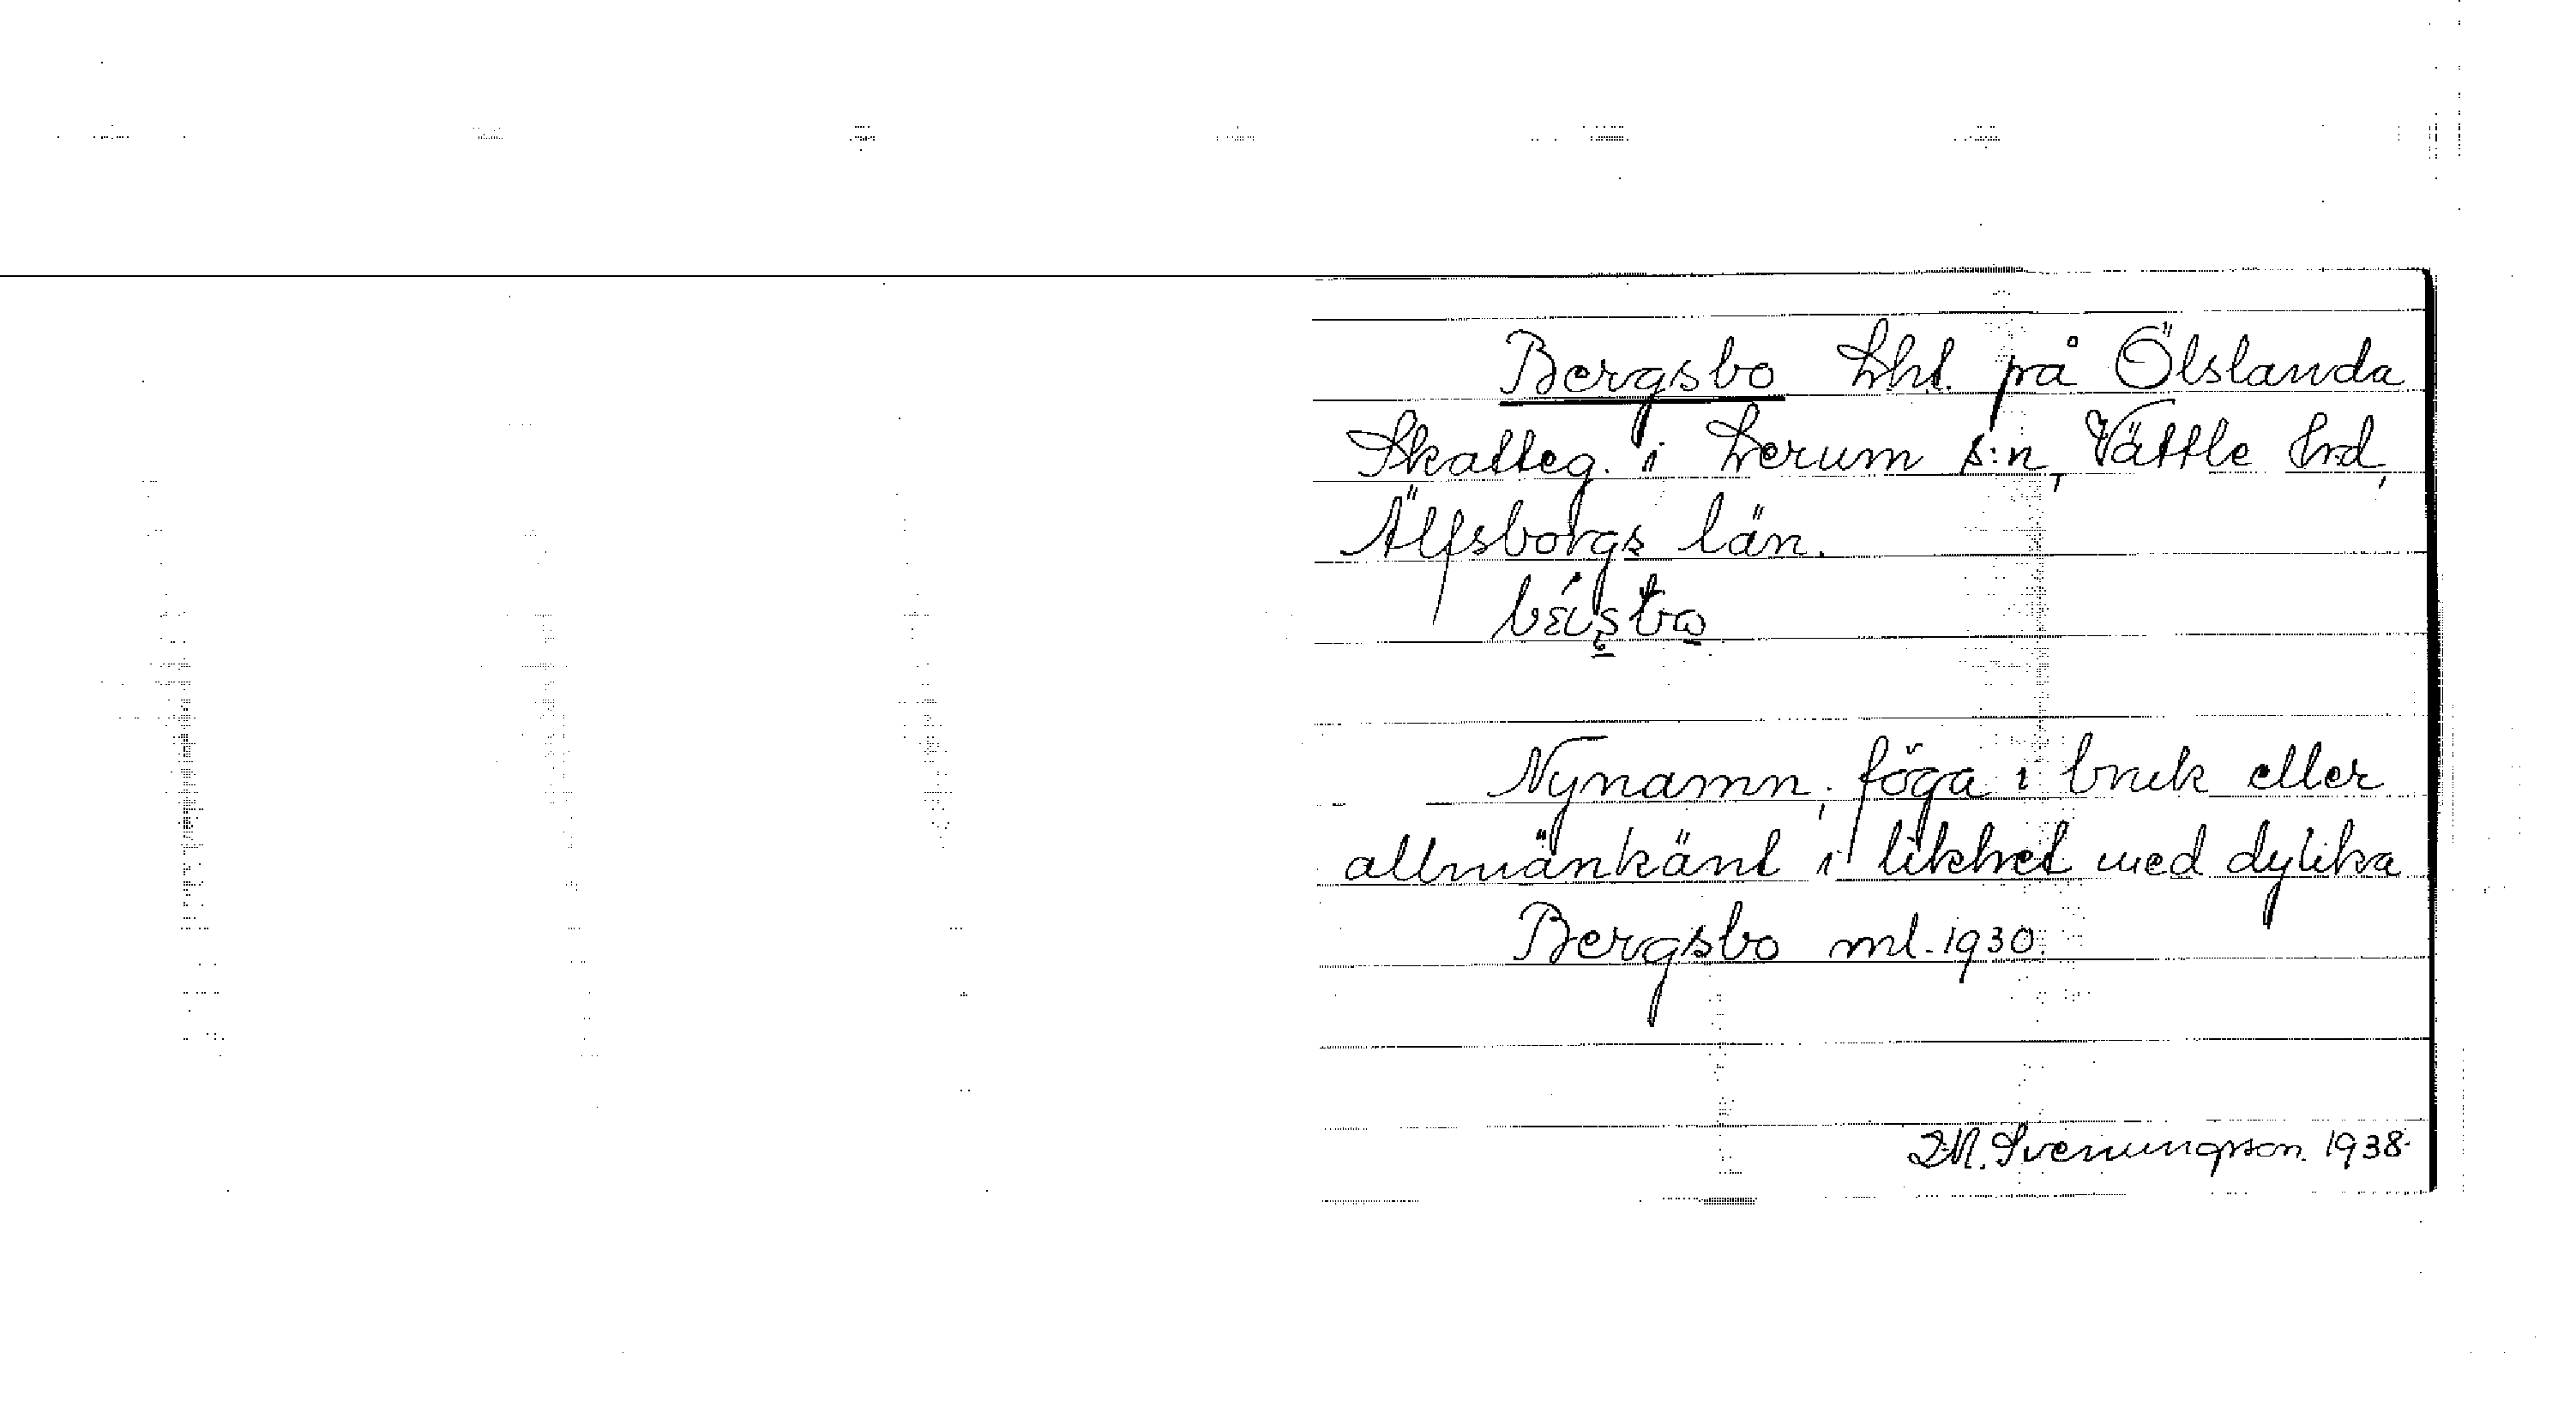 Bergsbo Lht. på Ölslanda
Skatteg. i Lerum s:n, Vättle Hrd,
Älfsborgs län.
Nynamn; föga i bruk eller
allmänkänt i likhet med dylika
Bergsbo ml. 1930.
Svenungsson. 1938.